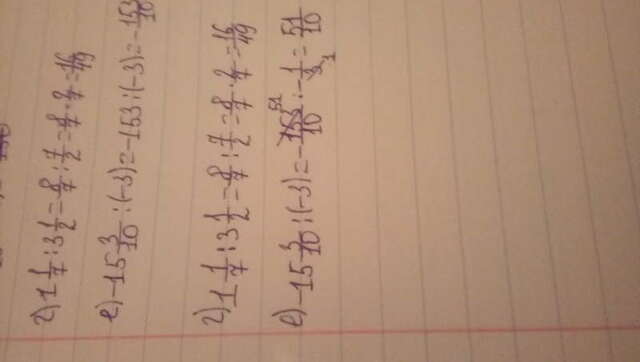 г) 1 1/7 : 3 1/2 = 8/7 : 7/2 = 8/7 · 2/7 = 16/49
е) -15 3/10 : (-3) = -153 : (-3) = - 153/10
г) 1 1/7 : 3 1/2 = 8/7 : 7/2 = 8/7 · 2/7 = 16/49
е) -15 3/10 : (-3) = - 153 51/10 · - 1/3 1 = 51/10